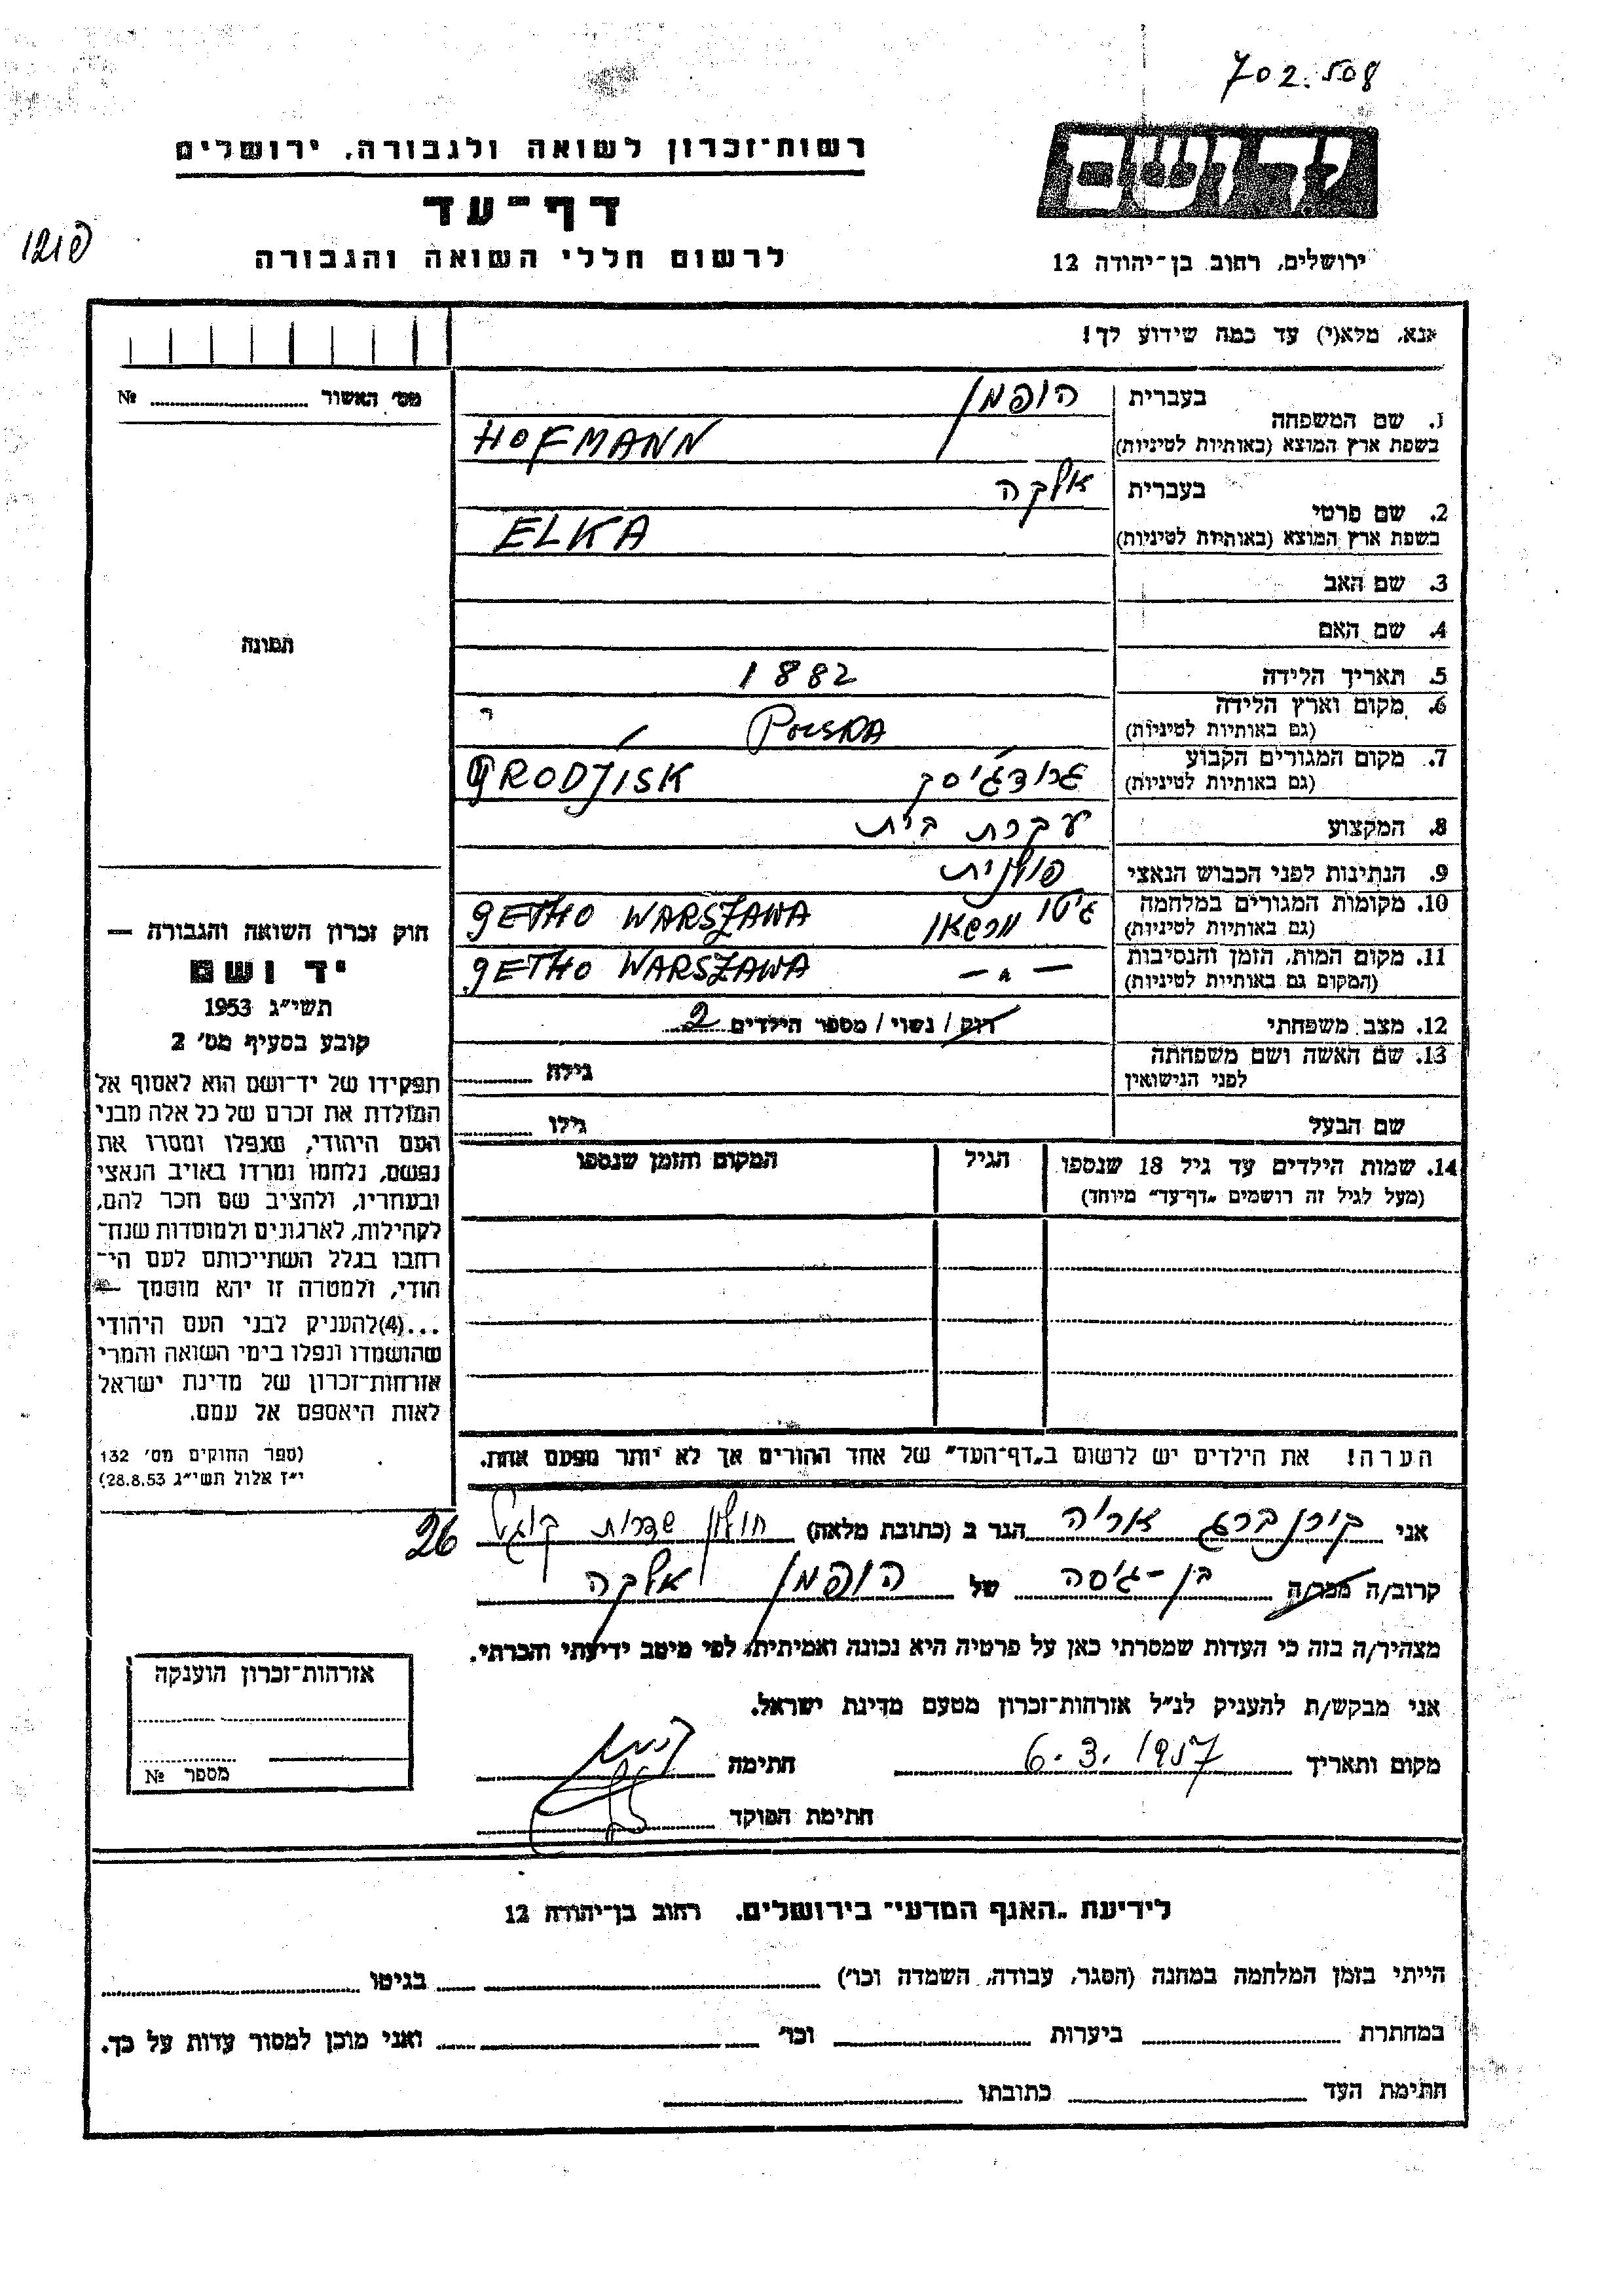 702.508
יד ושם
רשות־זכרון לשואה ולגבורה, ירושלים
דף־עד
לרשום חללי השואה והגבורה
ירושלים, רחוב בן־יהודה 12
אנא, מלא(י) עד כמה שידוע לך!
מס׳ האשור № ..........
1. שם המשפחה
בעברית הופמן
בשפת ארץ המוצא (באותיות לטיניות) HOFMANN
2. שם פרטי
בעברית אלקה
בשפת ארץ המוצא (באותיות לטיניות) ELKA
3. שם האב
4. שם האם
תמונה
5. תאריך הלידה 1882
6. מקום וארץ הלידה
(גם באותיות לטיניות) POLSKA
7. מקום המגורים הקבוע גרודז'יסק GRODJISK
(גם באותיות לטיניות)
8. המקצוע עקרת בית
9. הנתינות לפני הכבוש הנאצי פולנית
10. מקומות המגורים במלחמה גיטו ורשאו GETHO WARSZAWA
(גם באותיות לטיניות)
11. מקום המות, הזמן והנסיבות — " — GETHO WARSZAWA
(המקום גם באותיות לטיניות)
12. מצב משפחתי רוק / נשוי / מספר הילדים 2
13. שם האשה ושם משפחתה
לפני הנישואין גילה
שם הבעל גילו
14. שמות הילדים עד גיל 18 שנספו הגיל המקום והזמן שנספו
(מעל לגיל זה רושמים „דף־עד״ מיוחד)
הערה! את הילדים יש לרשום ב„דף־העד״ של אחד ההורים אך לא יותר מפעם אחת.
חוק זכרון השואה והגבורה —
יד ושם
תשי״ג 1953
קובע בסעיף מס׳ 2
תפקידו של יד־ושם הוא לאסוף אל
המולדת את זכרם של כל אלה מבני
העם היהודי, שנפלו ומסרו את
נפשם, נלחמו ומרדו באויב הנאצי
ובעוזריו, ולהציב שם וזכר להם,
לקהילות, לארגונים ולמוסדות שנח־
רבו בגלל השתייכותם לעם הי־
הודי, ולמטרה זו יהא מוסמך —
...(4)להעניק לבני העם היהודי
שהושמדו ונפלו בימי השואה והמרי
אזרחות־זכרון של מדינת ישראל
לאות היאספם אל עמם.
(ספר החוקים מס׳ 132
י״ז אלול תשי״ג 28.8.53)
אני קירנברג אריה הגר ב (כתובת מלאה) חולון שדרות קוגל 26
קרוב/ה מכר/ה בן-גיסה של הופמן אלקה
מצהיר/ה בזה כי העדות שמסרתי כאן על פרטיה היא נכונה ואמיתית, לפי מיטב ידיעתי והכרתי.
אני מבקש/ת להעניק לנ״ל אזרחות־זכרון מטעם מדינת ישראל.
מקום ותאריך 6.3.1957 חתימה
חתימת הפוקד
אזרחות־זכרון הוענקה
מספר №
לידיעת „האגף המדעי״ בירושלים. רחוב בן־יהודה 12
הייתי בזמן המלחמה במחנה (הסגר, עבודה, השמדה וכו׳) בגיטו
במחתרת ביערות וכו׳ ואני מוכן למסור עדות על כך.
חתימת העד כתובתו